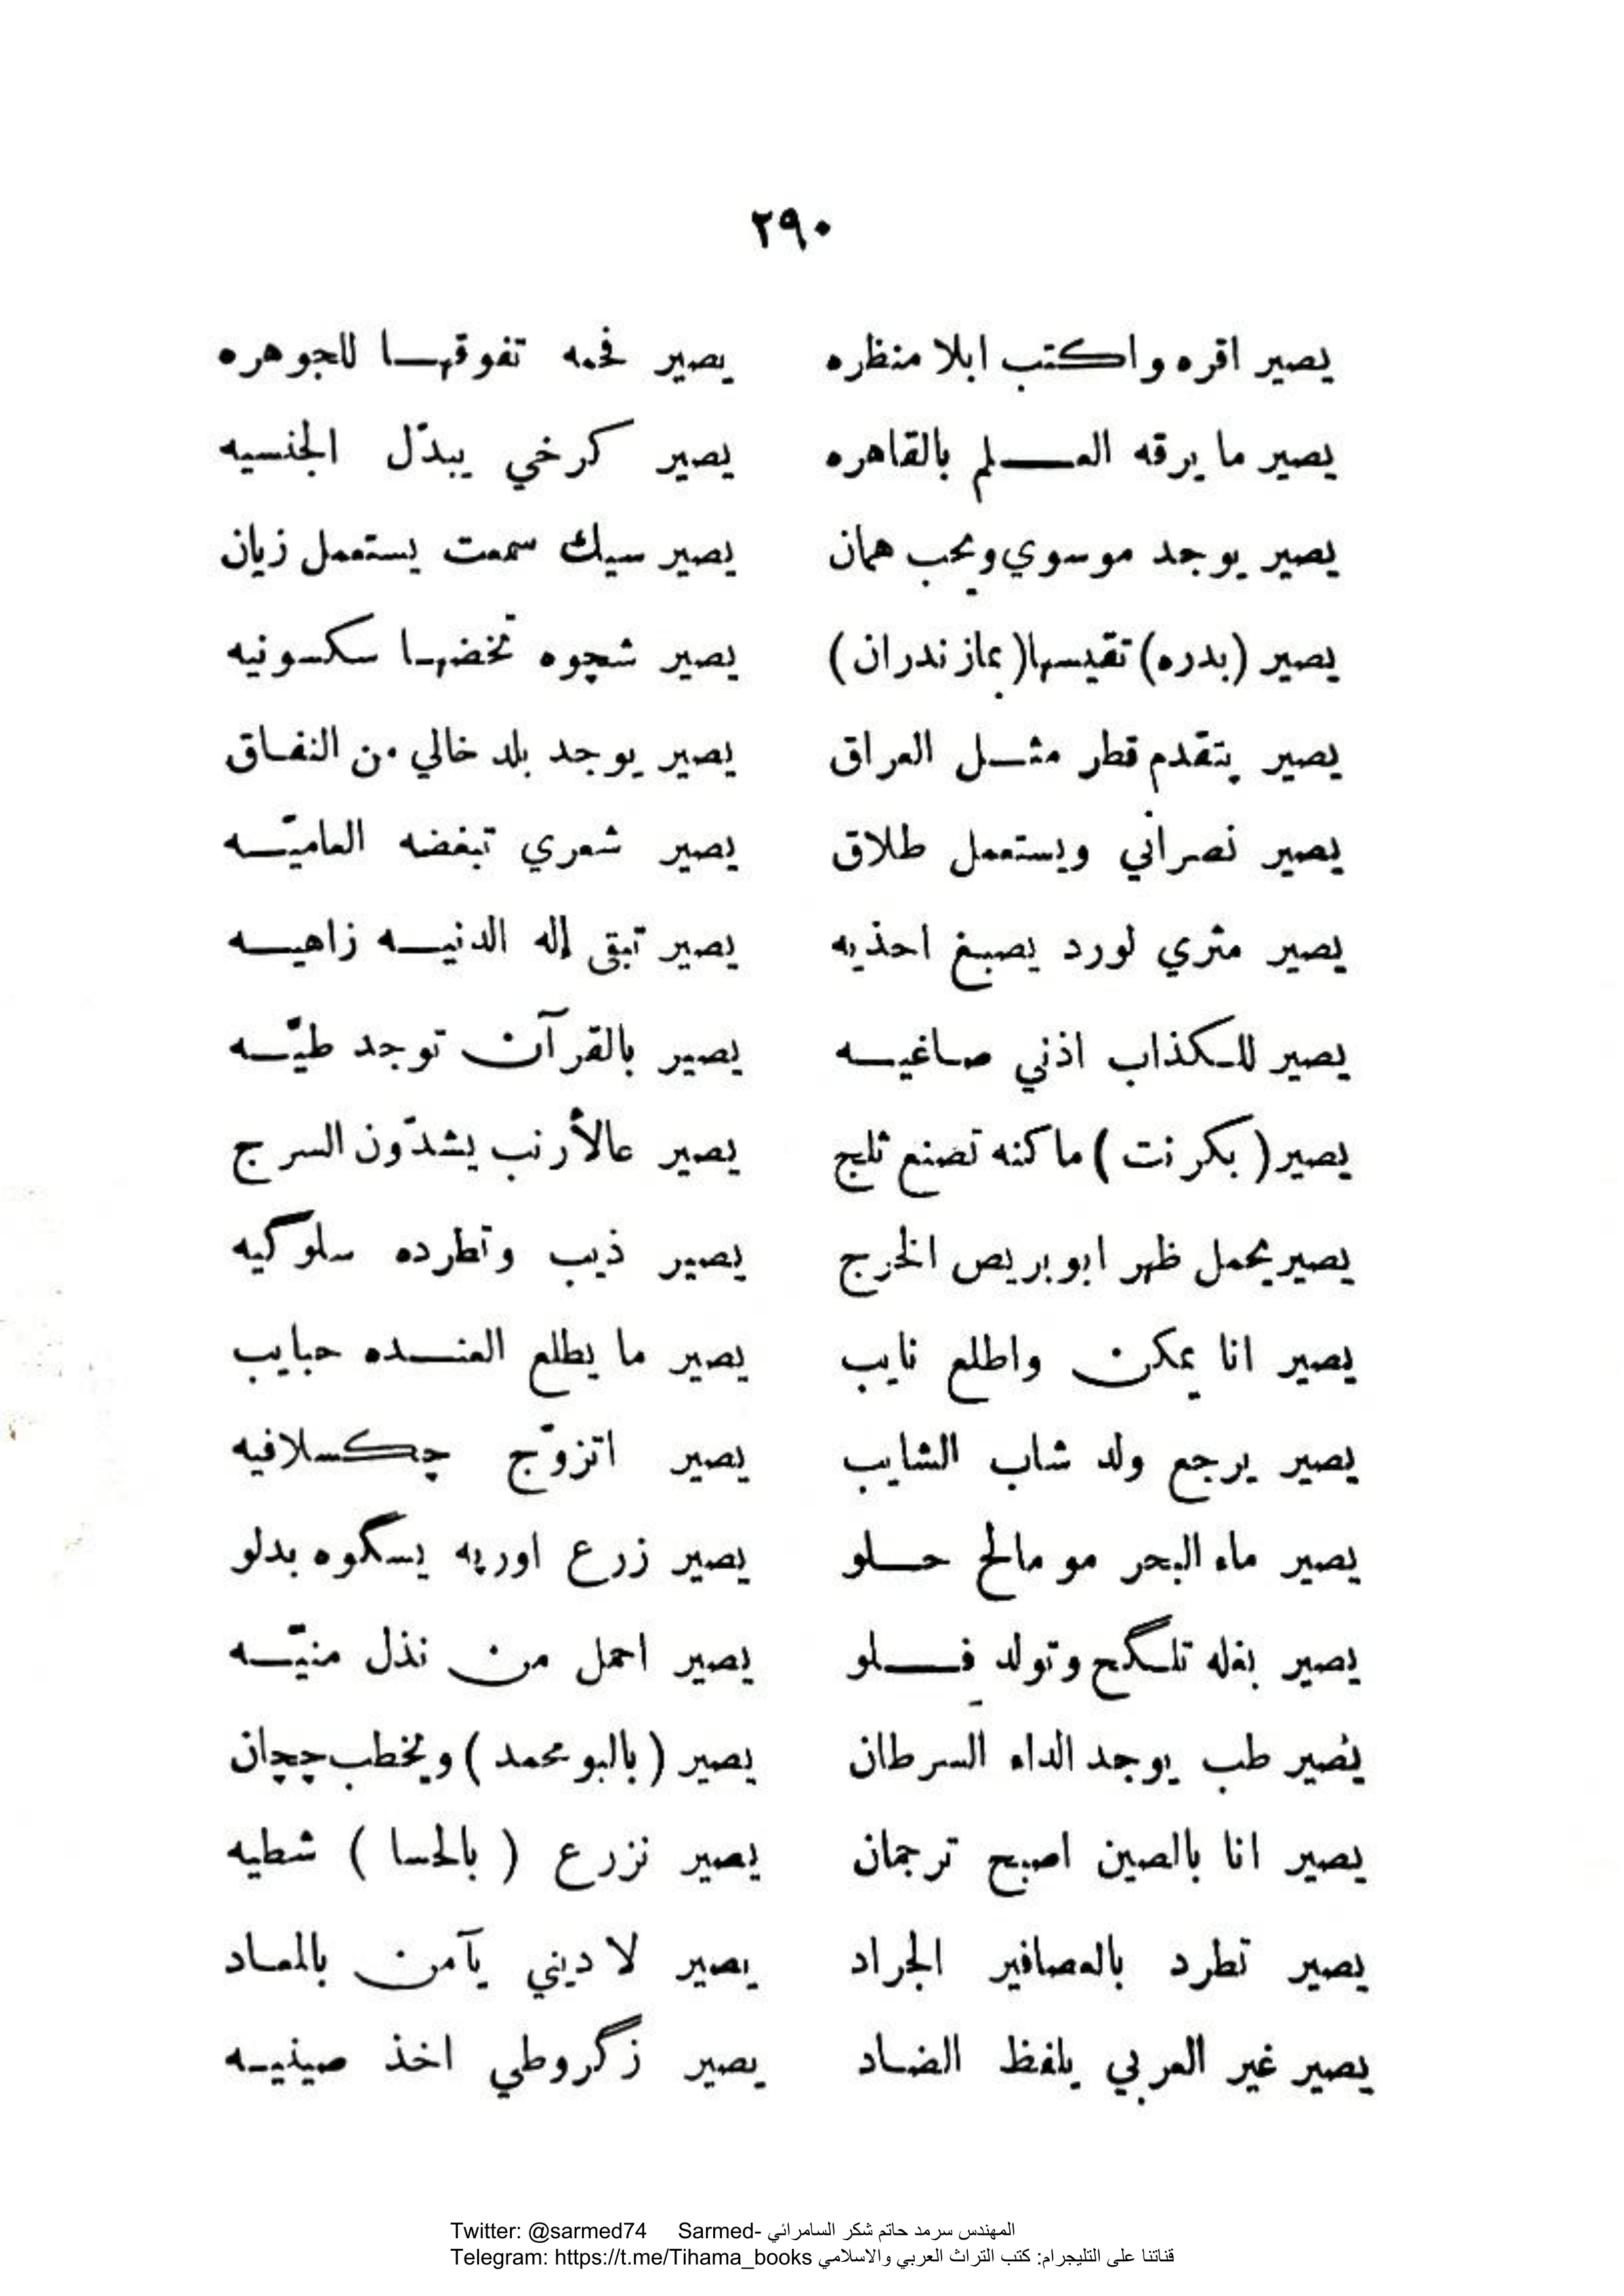 ٢٩٠
يصير اقره واكتب ابلا منظره يصير فحمه تفوقها للجوهره
يصير ما يرقه العلم بالقاهره يصير كرخي يبدّل الجنسيه
يصير يوجد موسوي ويحب همان يصير سيك سمعت يستعمل زيان
يصير (بدره) تقيسها (بمازندران) يصير شچوه تخضها سكسونيه
يصير يتقدم قطر مثل العراق يصير يوجد بلد خالي من النفاق
يصير نصراني ويستعمل طلاق يصير شعري تبغضه العاميّه
يصير مثري لورد يصبغ احذيه يصير تبقى إله الدنيه زاهيه
يصير للكذاب اذني صاغيه يصير بالقرآن توجد طيّه
يصير (بكرنت) ماكنه تصنع ثلج يصير عالأرنب يشدّون السرج
يصير يحمل ظهر ابو بريص الخرج يصير ذيب وتطرده سلوگيه
يصير انا يمكن واطلع نايب يصير ما يطلع العنده حبايب
يصير يرجع ولد شاب الشايب يصير اتزوّج چكسلافيه
يصير ماء البحر مو مالح حلو يصير زرع اوربه يسگوه بدلو
يصير بغله تلگح وتولد فلو يصير احمل من نذل منيّه
يصير طب يوجد الداء السرطان يصير (بالبو محمد) ويخطب چچان
يصير انا بالصين اصبح ترجمان يصير نزرع (بالحسا) شطيه
يصير تطرد بالعصافير الجراد يصير لا ديني يآمن بالمعاد
يصير غير العربي يلفظ الضاد يصير زگروطي اخذ صينيه
Twitter: @sarmed74 Sarmed- المهندس سرمد حاتم شكر السامرائي
Telegram: https://t.me/Tihama_books قناتنا على التليجرام: كتب التراث العربي والاسلامي